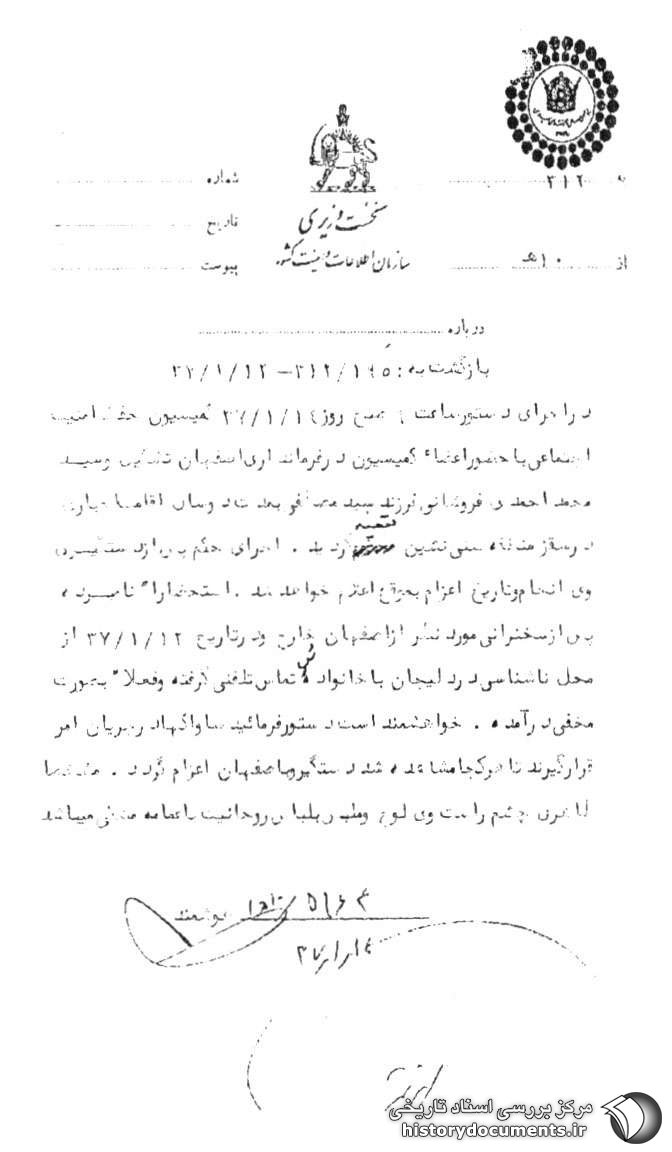 شماره
به ۳۱۲
تاریخ
نخست وزیری
پیوست
سازمان اطلاعات و امنیت کشور
از ۱۰ هـ
درباره
بازگشت به : ۳۱۲/۱۶۵ – ۳۷/۱/۱۲
در اجرای دستور ساعت صبح روز ۳۷/۱/۱۴ کمیسیون حفظ امنیت
اجتماعی با حضور اعضاء کمیسیون در فرمانداری اصفهان تشکیل و سید
محمد احمدی فروشانی فرزند سید بمدت دو سال اقامت اجباری
در سقز منطقه سنی نشین تعیین گردید . اجرای حکم پس از دستگیری
وی انجام و تاریخ اعزام بموقع اعلام خواهد شد . استحضارا" نامبرده
پس از سخنرانی مورد نظر از اصفهان خارج و در تاریخ ۳۷/۱/۱۲ از
محل ناشناسی در دلیجان با خانواده اش تماس تلفنی گرفته و فعلا" بصورت
مخفی درآمده . خواهشمند است دستور فرمائید ساواکها در جریان امر
قرار گیرند تا هر کجا مشاهده شد دستگیر و باصفهان اعزام گردد . ضمنا
چشم راست وی لوچ و ملبس بلباس روحانیت با عمامه مشکی میباشد
هوشمند
۳۷/۱/۱۴
مرکز بررسی اسناد تاریخی
historydocuments.ir